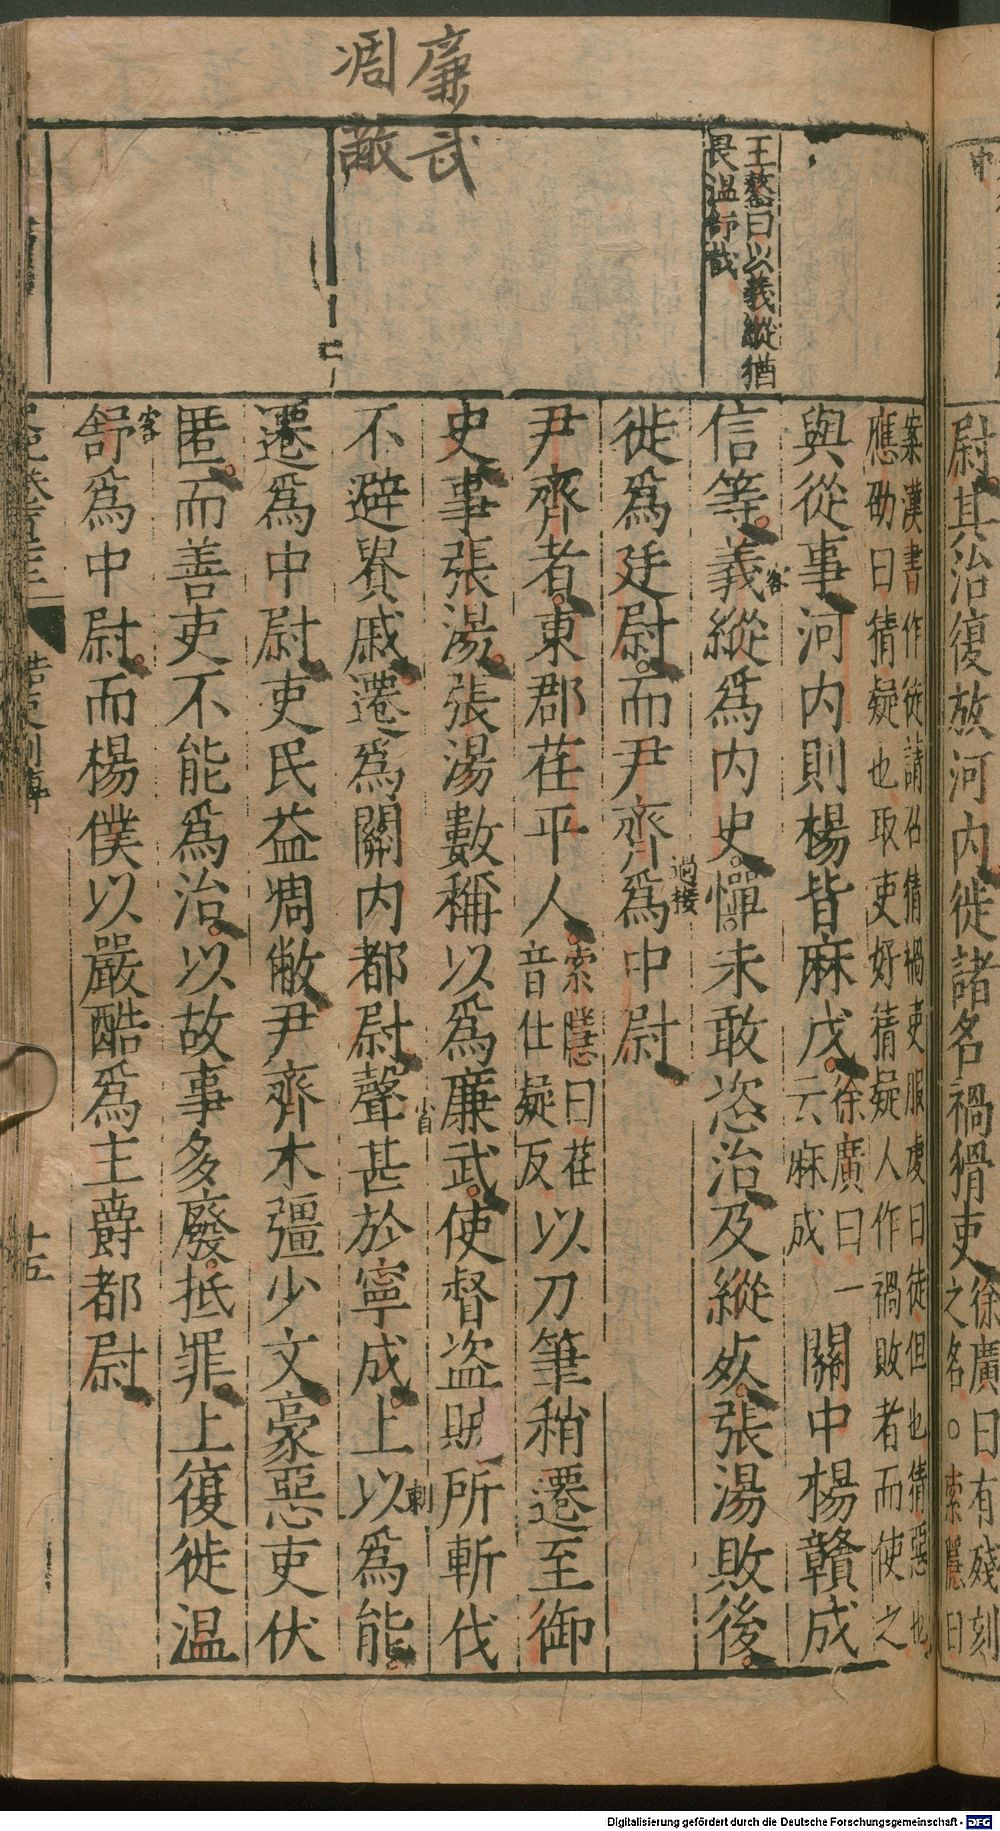 廉武
凋敝
王鏊曰以義縱猶
畏溫舒哉
尉其治復放河內徙諸名禍猾吏
徐廣曰有殘刻
之名○索隱曰
案漢書作徒請召猜禍吏服虔曰徒但也猜惡也
應劭曰猜疑也取吏好猜疑人作禍敗者而使之
與從事河內則楊皆麻戊
徐廣曰一
云麻成
關中楊贛成
信等義縱爲內史憚未敢恣治及縱死張湯敗後
客
徙爲廷尉而尹齊爲中尉
過接
尹齊者東郡茌平人
索隱曰茌
音仕疑反
以刀筆稍遷至御
史事張湯張湯數稱以爲廉武使督盜賊所斬伐
不避貴戚遷爲關內都尉聲甚於寧成上以爲能
遷爲中尉吏民益凋敝尹齊木彊少文豪惡吏伏
匿而善吏不能爲治以故事多廢抵罪上復徙溫
客
舒爲中尉而楊僕以嚴酷爲主爵都尉
酷吏列傳
十五
Digitalisierung gefördert durch die Deutsche Forschungsgemeinschaft - DFG